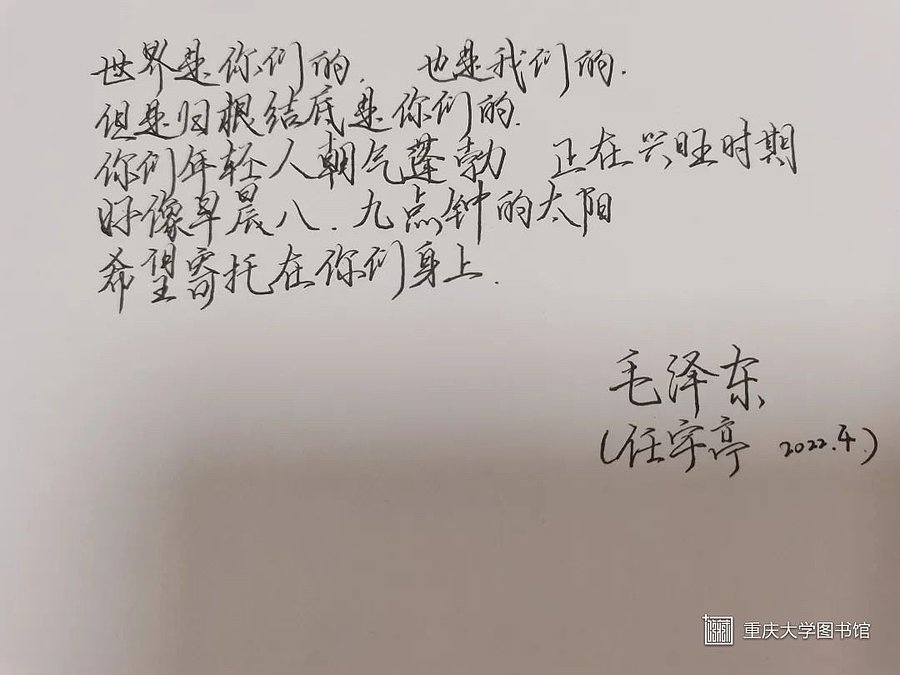 世界是你们的. 也是我们的.
但是归根结底是你们的.
你们年轻人朝气蓬勃 正在兴旺时期
好像早晨八.九点钟的太阳
希望寄托在你们身上.
毛泽东
(任宇亭 2022.4.)
重庆大学图书馆